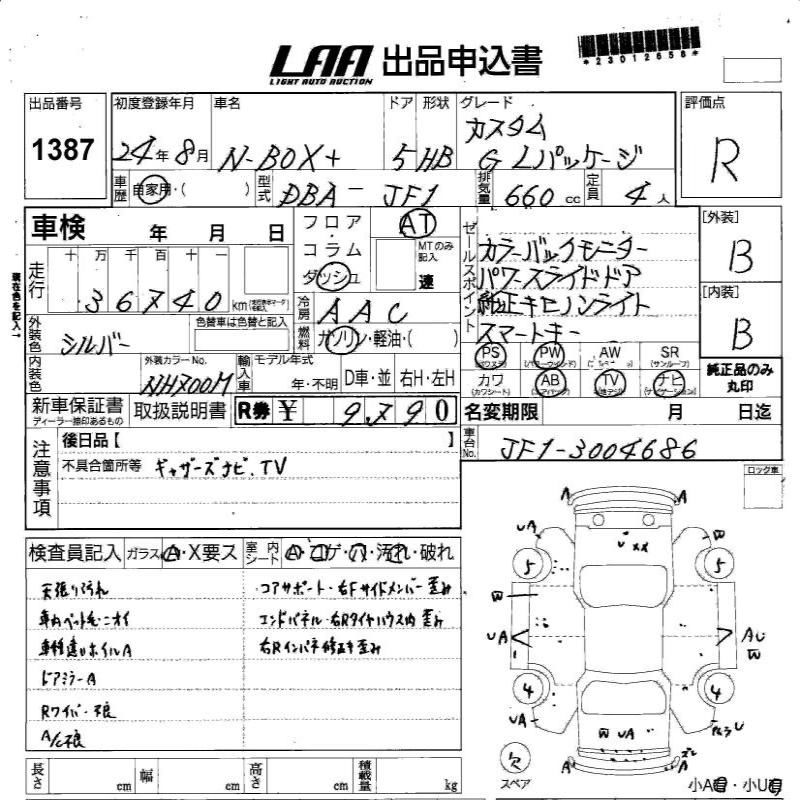 LAA 出品申込書
LIGHT AUTO AUCTION
*23012658*
出品番号 初度登録年月 車名 ドア 形状 グレード 評価点
1387 24年8月 N-BOX+ 5 HB カスタム R
G Lパッケージ
車歴 自家用・( ) 型式 DBA-JF1 排気量 660 cc 定員 4人
車検 年 月 日
フロア AT
コラム MTのみ記入
ダッシュ 速
走行 十 万 千 百 十 一
36740 km
現在色を記入→
冷房 AAC
セールスポイント カラーバックモニター
パワースライドドア
純正キセノンライト
スマートキー
[外装] B
[内装] B
外装色 シルバー 色替車は色替と記入
燃料 ガソリン・軽油・( )
内装色 外装カラーNo. NH700M 輸入車 モデル年式 年・不明 D車・並 右H・左H
PS PW AW SR
(パワーウインド) (サンルーフ)
カワ AB TV ナビ
(カワシート)
純正品のみ丸印
新車保証書 取扱説明書 R券 ¥ 9,790
ディーラー捺印あるもの
名変期限 月 日迄
注意事項 後日品【 】
不具合箇所等 ギャザーズナビ.TV
車台No. JF1-3004686
ロック車
検査員記入 ガラス A・X要ス 室内シート A・コゲ・穴・汚れ・破れ
天張り汚れ コアサポート・右Fサイドメンバー歪み
車内ペット毛・ニオイ エンドパネル・右Rタイヤハウス内歪み
車種違いホイルA 右Rインパネ修正キ歪み
ドアミラーA
Rワイパー不良
A/C不良
A A
UA W
U XX
5 5
W
UA AU
W
4 4
UA
W UA
欠 A A
スペア
長さ cm 幅 cm 高さ cm 積載量 kg